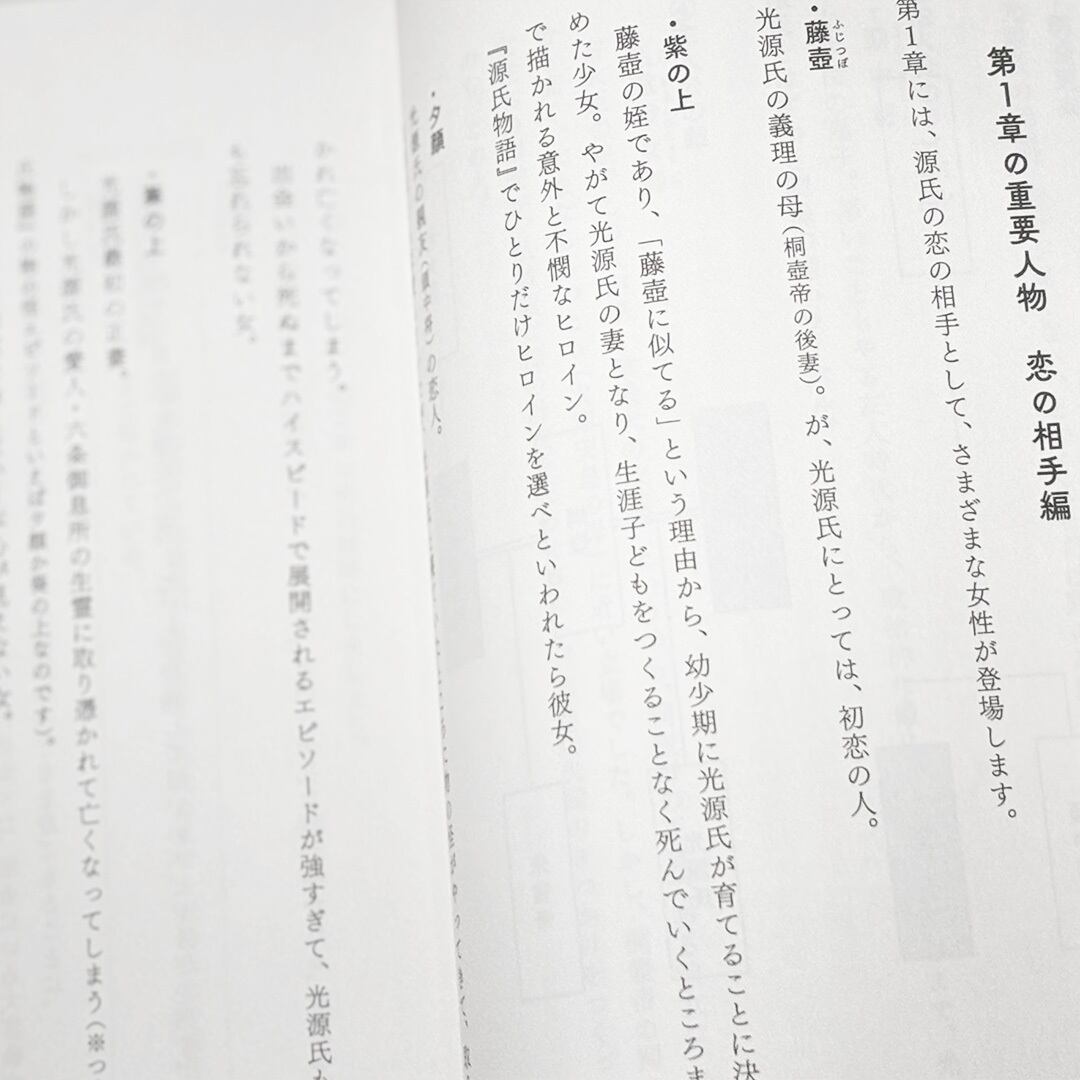 第1章の重要人物　恋の相手編
第1章には、源氏の恋の相手として、さまざまな女性が登場します。
・藤壺
ふじつぼ
光源氏の義理の母（桐壺帝の後妻）。が、光源氏にとっては、初恋の人。
・紫の上
藤壺の姪であり、「藤壺に似てる」という理由から、幼少期に光源氏が育てることに決
めた少女。やがて光源氏の妻となり、生涯子どもをつくることなく死んでいくところま
で描かれる意外と不憫なヒロイン。
『源氏物語』でひとりだけヒロインを選べといわれたら彼女。
・夕顔
光源氏の親友（頭中将）の恋人。
かれ亡くなってしまう。
出会いから死ぬまでハイスピードで展開されるエピソードが強すぎて、光源氏
も忘れられない女。
・葵の上
光源氏最初の正妻。
しかし光源氏の愛人・六条御息所の生霊に取り憑かれて亡くなってしまう（※っ